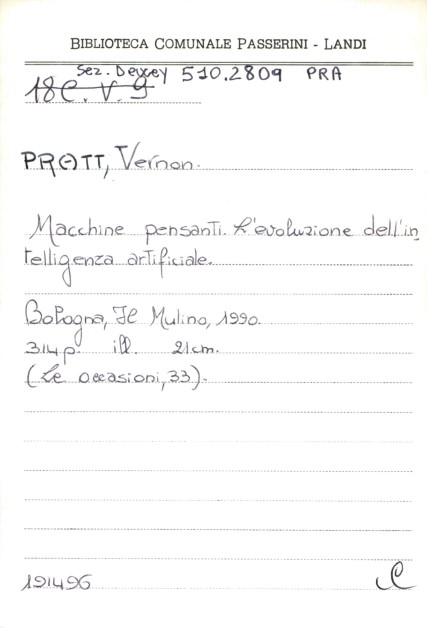 BIBLIOTECA COMUNALE PASSERINI - LANDI
Sez. Dewey 510.2809 PRA
18C. V. 9
PRATT, Vernon.
Macchine pensanti. L'evoluzione dell'in
telligenza artificiale.
Bologna, Il Mulino, 1990.
314 p. ill. 21cm.
(Le occasioni, 33).
191496